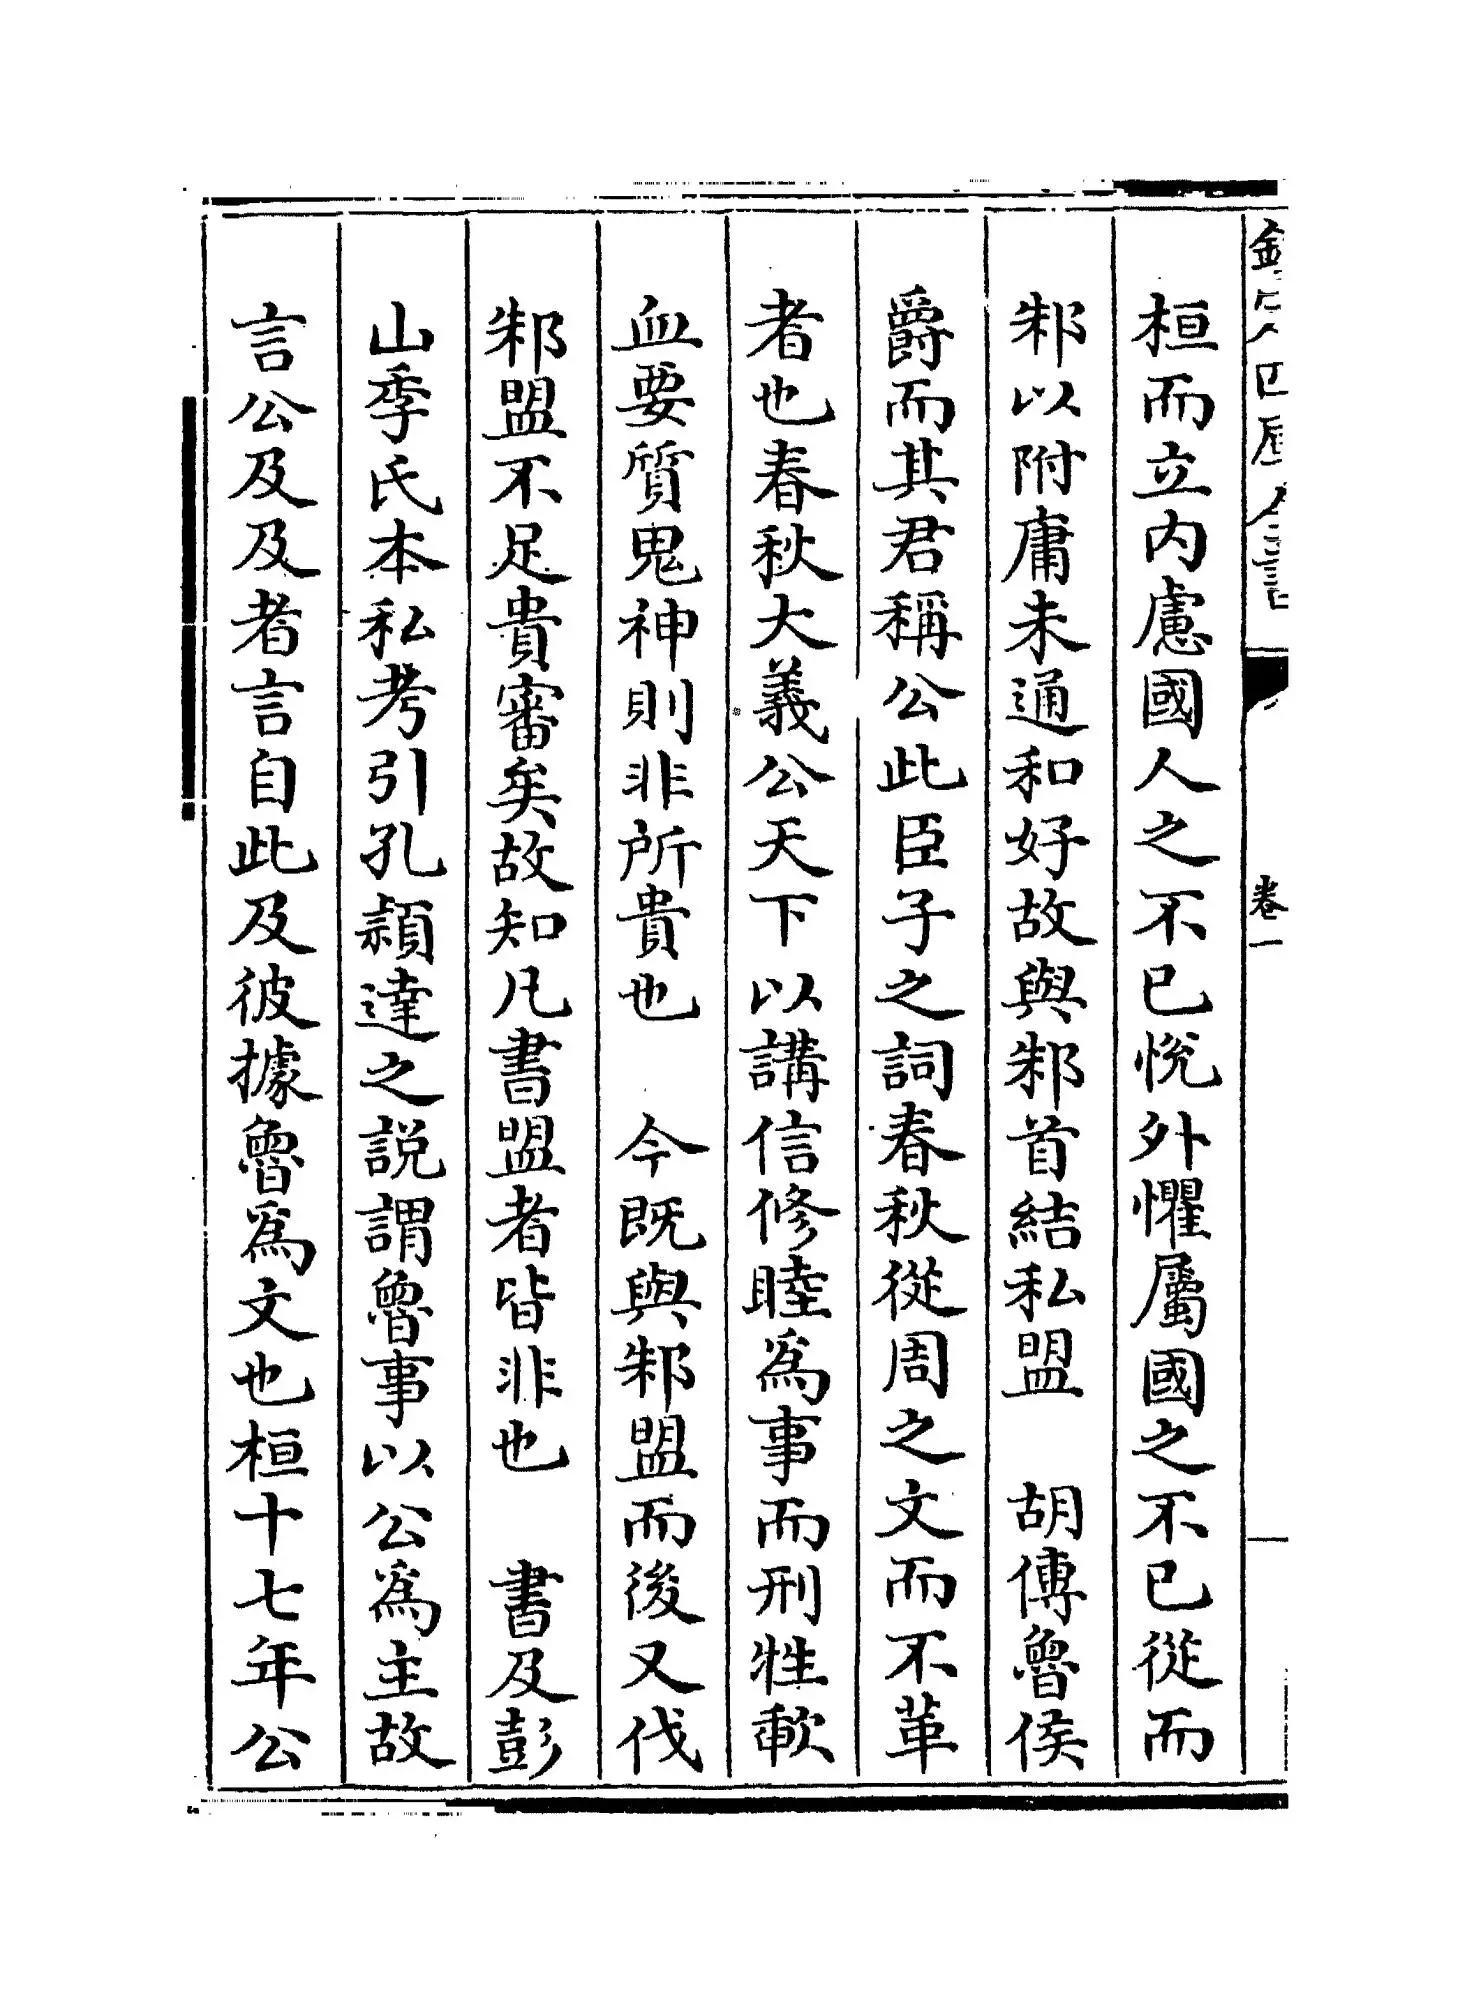 桓而立内慮國人之不已悅外懼屬國之不已從而
邾以附庸未通和好故與邾首結私盟　胡傳魯侯
爵而其君稱公此臣子之詞春秋從周之文而不革
者也春秋大義公天下以講信修睦為事而刑牲歃
血要質鬼神則非所貴也　今既與邾盟而後又伐
邾盟不足貴審矣故知凡書盟者皆非也　書及彭
山季氏本私考引孔頴達之説謂魯事以公為主故
言公及及者言自此及彼據魯為文也桓十七年公
卷一